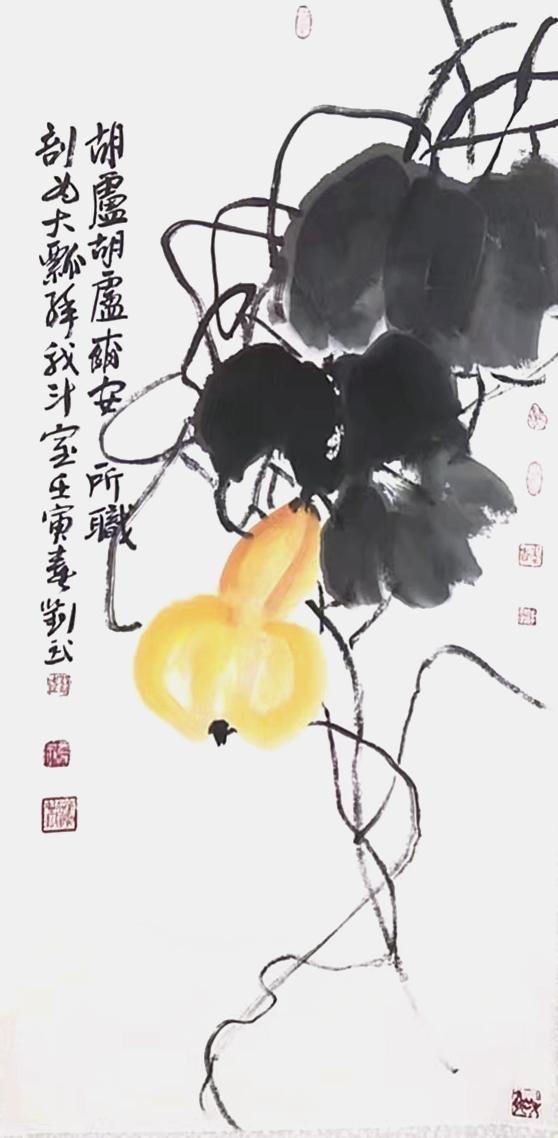 胡盧胡盧爾安所職
剖為大瓢鎽我斗室壬寅春劉玉